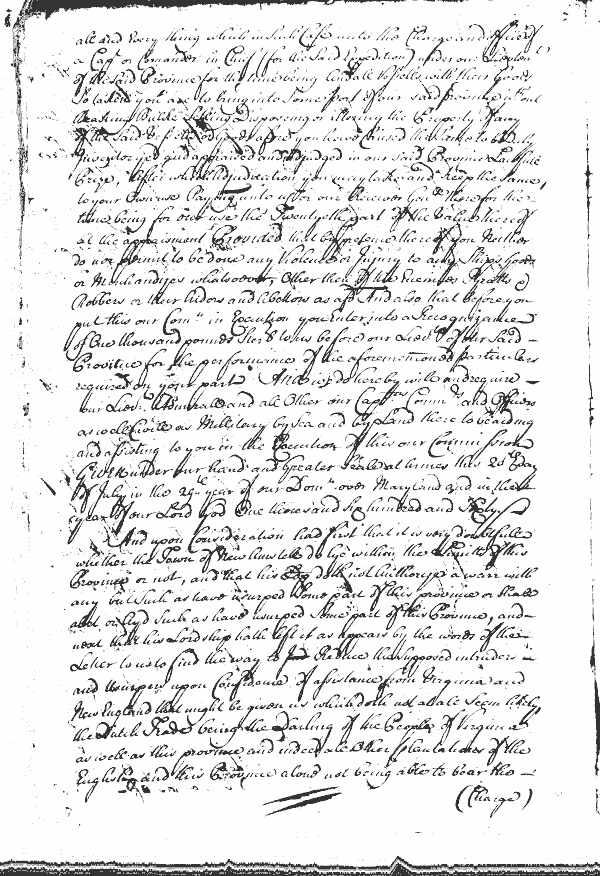 all and Every thing which in Such Case unto the Charge and office of
a Capt or Comander in Chief (for the Said Expedition) under our Lieutent
of the said Province for the time being And all Vessells with their Goods
So taken you are to bring into Some port of our said Province without
breaking Bulke Selling disposeing or altering the Property of any
of the said Vessells or Goods afsd you have Caused the same to be duly
Inventoryed and appraised and adjudged in our said Province Lawfull
Prize, After which adjudication you may take and keep the same,
to your Own use Paying unto us or our Receiver Genll there for the
time being for our use the Twentyeth part of the Value thereof
at the appraisment Provided that by pretence thereof you Neither
do nor permit to be done any Violence or Injury to any Ships goods
or Merchandizes whatsoever, Other then of the Enemies Pyratts &
Robbers or their Aidors and Abettors as afsd And also that before you
put this our Comn in Execution you Enter into a Recognizance
of One thousand pounds Sterl to us before our Lieut of our Said
Province for the performance of the aforementioned particulers
required on your part And we do hereby will and require
our Lieut: Admirall and all Other our Captns Commrs and Officers
as well Civill as Millitary by sea and by Land there to be aiding
and assisting to you in the Execution of this our Commission
Given under our hand and Greater Seale at Armes this 20th Day
of July in the 29th year of our Domn over Maryland and in the
year of our Lord God One thousand Six hundred and Sixty
And upon Consideration had first that it is very doubtfull
whether the Town of New Amstell do lye within the Limitts of this
Province or not, and that his Lop doth not Authorize a warr with
any but Such as have usurped Some part of this province or Shall
aid or Such as have usurped Some part of this Province, and
next that his Lordship hath left it as appears by the words of the
Letter to us to find the way to Reduce the supposed intruders
and usurpers upon Confidence of assistance from Virginia and
New England that might be given us which doth not at all Seem likely
the Dutch Trade being the Darling of the People of Virginia
as well as this province and indeed all Other plantations of the
English, and this Province alone not being able to bear the
(Charge)